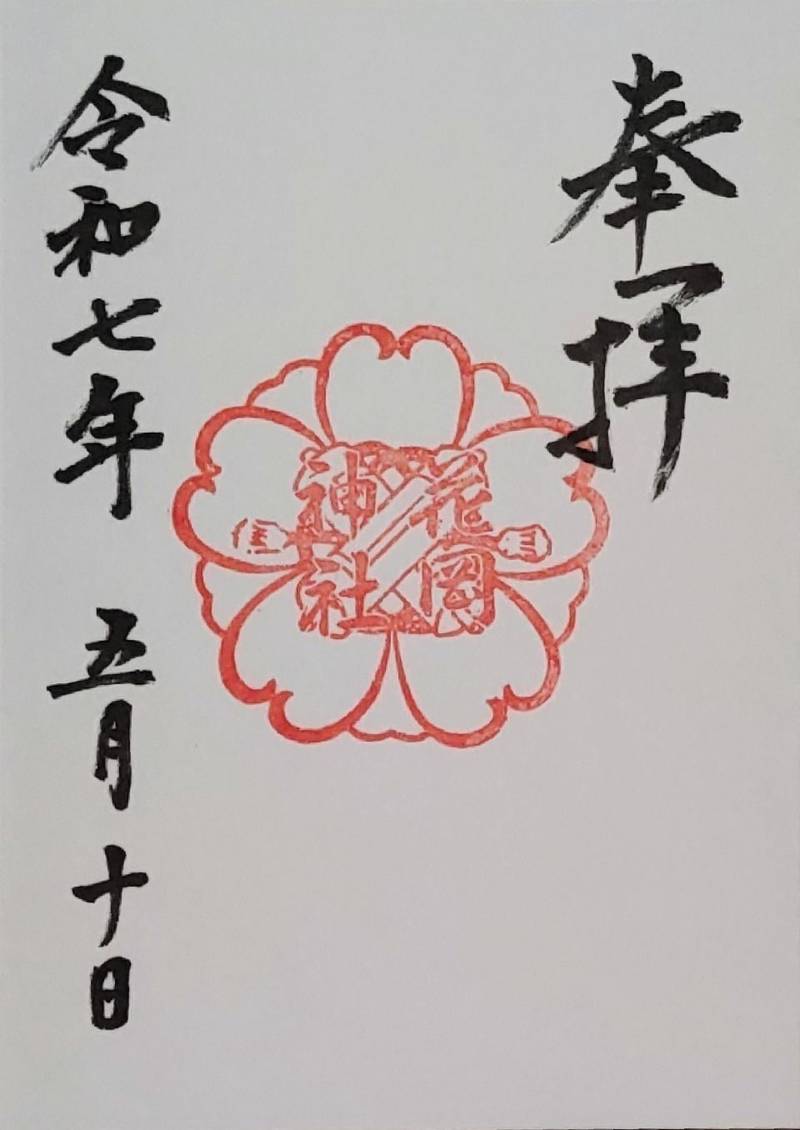 奉拝
花岡
神社
令和七年 五月十日